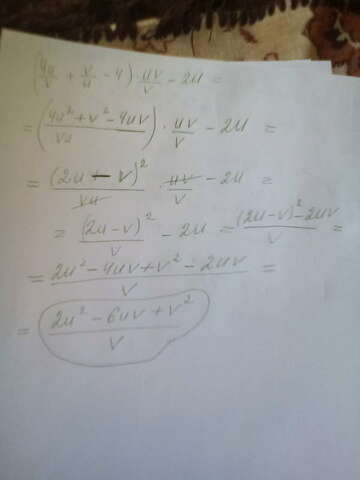 (4u/v + v/u - 4) · uv/v - 2u =
= (4u² + v² - 4uv / vu) · uv/v - 2u =
= (2u - v)² / vu · uv/v - 2u =
= (2u - v)² / v - 2u = (2u - v)² - 2uv / v =
= 2u² - 4uv + v² - 2uv / v =
= 2u² - 6uv + v² / v